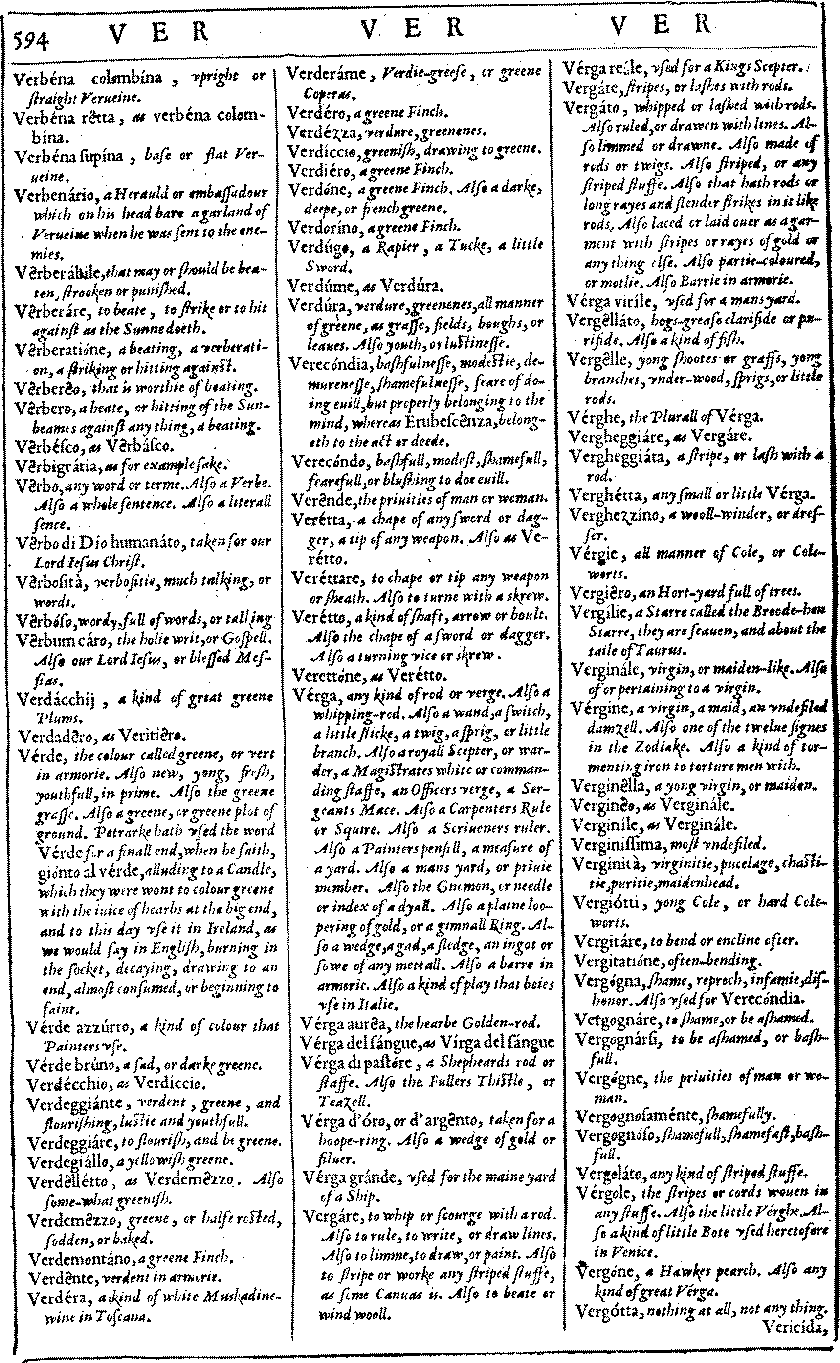 594 V E R V E R V E R
Verbéna colombína , vpright or
ſtraight Verueine.
Verbéna rẽtta, as verbéna colom-
bína.
Verbéna ſupína , baſe or flat Ver-
ueine.
Verbenário, a Herauld or embaſſadour
which on his head bare a garland of
Verueine when he was ſent to the ene-
mies.
Vẽrberábile, that may or ſhould be bea-
ten, ſtrooken or puniſhed.
Vẽrberáre, to beate , to ſtrike or to hit
againſt as the Sunne doeth.
Vẽrberatióne, a beating, a verberati-
on, a ſtriking or hitting againſt.
Vẽrberẽo, that is worthie of beating.
Vẽrbero, a beate, or hitting of the Sun-
beames againſt any thing, a beating.
Vẽrbéſco, as Vẽrbáſco.
Vẽrbigrátia, as for example ſake.
Vẽrbo, any word or terme. Alſo a Verbe.
Alſo a whole ſentence. Alſo a literall
ſence.
Vẽrbo di Dío humanáto, taken for our
Lord Ieſus Chriſt.
Vẽrboſità, verboſitie, much talking, or
words.
Vẽrbóſo, wordy, full of words, or talking
Vẽrbum cáro, the holie writ, or Goſpell.
Alſo our Lord Ieſus, or bleſſed Meſ-
ſias.
Verdácchij , a kind of great greene
Plums.
Verdadẽro, as Veritiẽro.
Vérde, the colour called greene, or vert
in armorie. Alſo new, yong, freſh,
youthfull, in prime. Alſo the greene
graſſe. Alſo a greene, or greene plot of
ground. Petrarke hath vſed the word
Vérde for a finall end, when he ſaith,
giónto al vérde, alluding to a Candle,
which they were wont to colour greene
with the iuice of hearbs at the big end,
and to this day vſe it in Ireland, as
we would ſay in Engliſh, burning in
the ſocket, decaying, drawing to an
end, almoſt conſumed, or beginning to
faint.
Vérde azzúrro, a kind of colour that
Painters vſe.
Vérde brúno, a ſad, or darke greene.
Verdécchio, as Verdíccio.
Verdeggiánte, verdent , greene , and
flouriſhing, luſtie and youthfull.
Verdeggiáre, to flouriſh, and be greene.
Verdegiállo, a yellowiſh greene.
Verdẽllétto, as Verdemẽzzo. Alſo
ſome-what greeniſh.
Verdemẽzzo, greene, or halfe roſted,
ſodden, or baked.
Verdemontáno, a greene Finch.
Verdẽnte, verdent in armorie.
Verdéra, a kind of white Muskadine-
wine in Toſcana.
Verderáme, Verdie-greeſe, or greene
Coperas.
Verdéro, a greene Finch.
Verdézza, verdure, greenenes.
Verdíccio, greeniſh, drawing to greene.
Verdiéro, a greene Finch.
Verdóne, a greene Finch. Alſo a darke,
deepe, or french greene.
Verdoríno, a greene Finch.
Verdúgo, a Rapier , a Tucke, a little
Sword.
Verdúme, as Verdúra.
Verdúra, verdure, greenenes, all manner
of greene, as graſſe, fields, boughs, or
leaues. Alſo youth, or luſtineſſe.
Verecóndia, baſhfulneſſe, modeſtie, de-
mureneſſe, ſhamefulneſſe, feare of do-
ing euill, but properly belonging to the
mind, whereas Erubeſcẽnza, belong-
eth to the act or deede.
Verecóndo, baſhfull, modeſt, ſhamefull,
fearefull, or bluſhing to doe euill.
Verẽnde, the priuities of man or woman.
Verétta, a chape of any ſword or dag-
ger, a tip of any weapon. Alſo as Ve-
rétto.
Veréttare, to chape or tip any weapon
or ſheath. Alſo to turne with a skrew.
Verétto, a kind of ſhaft, arrow or boult.
Alſo the chape of a ſword or dagger.
Alſo a turning vice or skrew.
Verettóne, as Verétto.
Vérga, any kind of rod or verge. Alſo a
whipping-rod. Alſo a wand, a ſwitch,
a little ſticke, a twig, a ſprig, or little
branch. Alſo a royall Scepter, or war-
der, a Magiſtrates white or comman-
ding ſtaffe, an Officers verge, a Ser-
geants Mace. Alſo a Carpenters Rule
or Squire. Alſo a Scriueners ruler.
Alſo a Painters penſill, a meaſure of
a yard. Alſo a mans yard, or priuie
member. Alſo the Gnomon, or needle
or index of a dyall. Alſo a plaine hoo-
pering of gold, or a gimnall Ring. Al-
ſo a wedge, a gad, a ſledge, an ingot or
ſowe of any mettall. Alſo a barre in
armorie. Alſo a kind of play that boies
vſe in Italie.
Vérga aurẽa, the hearbe Golden-rod.
Vérga del ſángue, as Vírga del ſángue
Vérga di paſtóre , a Shepheards rod or
ſtaffe. Alſo the Fullers Thiſtle, or
Teazell.
Vérga d'óro, or d'argẽnto, taken for a
hoope-ring. Alſo a wedge of gold or
ſiluer.
Vérga gránde, vſed for the maine yard
of a Ship.
Vergáre, to whip or ſcourge with a rod.
Alſo to rule, to write, or draw lines.
Alſo to limme, to draw, or paint. Alſo
to ſtripe or worke any ſtriped ſtuffe,
as ſome Canuas is. Alſo to beate or
wind wooll.
Vérga reále, vſed for a Kings Scepter.
Vergáte, ſtripes, or laſhes with rods.
Vergáto, whipped or laſhed with rods.
Alſo ruled, or drawen with lines. Al-
ſo limmed or drawne. Alſo made of
rods or twigs. Alſo ſtriped, or any
ſtriped ſtuffe. Alſo that hath rods or
long rayes and ſlender ſtrikes in it like
rods. Alſo laced or laid ouer as a gar-
ment with ſtripes or rayes of gold or
any thing elſe. Alſo partie-coloured,
or motlie. Alſo Barrie in armorie.
Vérga viríle, vſed for a mans yard.
Vergẽlláto, hogs-greaſe clarifide or pu-
rifide. Alſo a kind of fiſh.
Vergẽlle, yong ſhootes or graffs, yong
branches, vnder-wood, ſprigs, or little
rods.
Vérghe, the Plurall of Vérga.
Vergheggiáre, as Vergáre.
Vergheggiáta, a ſtripe, or laſh with a
rod.
Verghétta, any ſmall or little Vérga.
Verghezzíno, a wooll-winder, or dreſ-
ſer.
Vérgie, all manner of Cole, or Cole-
worts.
Vergiẽro, an Hort-yard full of trees.
Vergílie, a Starre called the Broode-hen
Starre, they are ſeauen, and about the
taile of Taurus.
Verginále, virgin, or maiden-like. Alſo
of or pertaining to a virgin.
Vérgine, a virgin, a maid, an vndefiled
damzell. Alſo one of the twelue ſignes
in the Zodiake. Alſo a kind of tor-
menting iron to torture men with.
Verginẽlla, a yong virgin, or maiden.
Verginẽo, as Verginále.
Verginíle, as Verginále.
Verginíſſima, moſt vndefiled.
Verginità, virginitie, pucelage, chaſti-
tie, puritie, maidenhead.
Vergiótti, yong Cole, or hard Cole-
worts.
Vergitáre, to bend or encline ofter.
Vergitatióne, often-bending.
Vergógna, ſhame, reproch, infamie, diſ-
honor. Alſo vſed for Verecóndia.
Vergognáre, to ſhame, or be aſhamed.
Vergognárſi, to be aſhamed, or baſh-
full.
Vergógne, the priuities of man or wo-
man.
Vergognoſaménte, ſhamefully.
Vergognóſo, ſhamefull, ſhamefaſt, baſh-
full.
Vergoláto, any kind of ſtriped ſtuffe.
Vérgole, the ſtripes or cords wouen in
any ſtuffe. Alſo the little Vérghe. Al-
ſo a kind of little Bote vſed heretofore
in Venice.
Vergóne, a Hawkes pearch. Alſo any
kind of great Vérga.
Vergótta, nothing at all, not any thing.
Vericída,